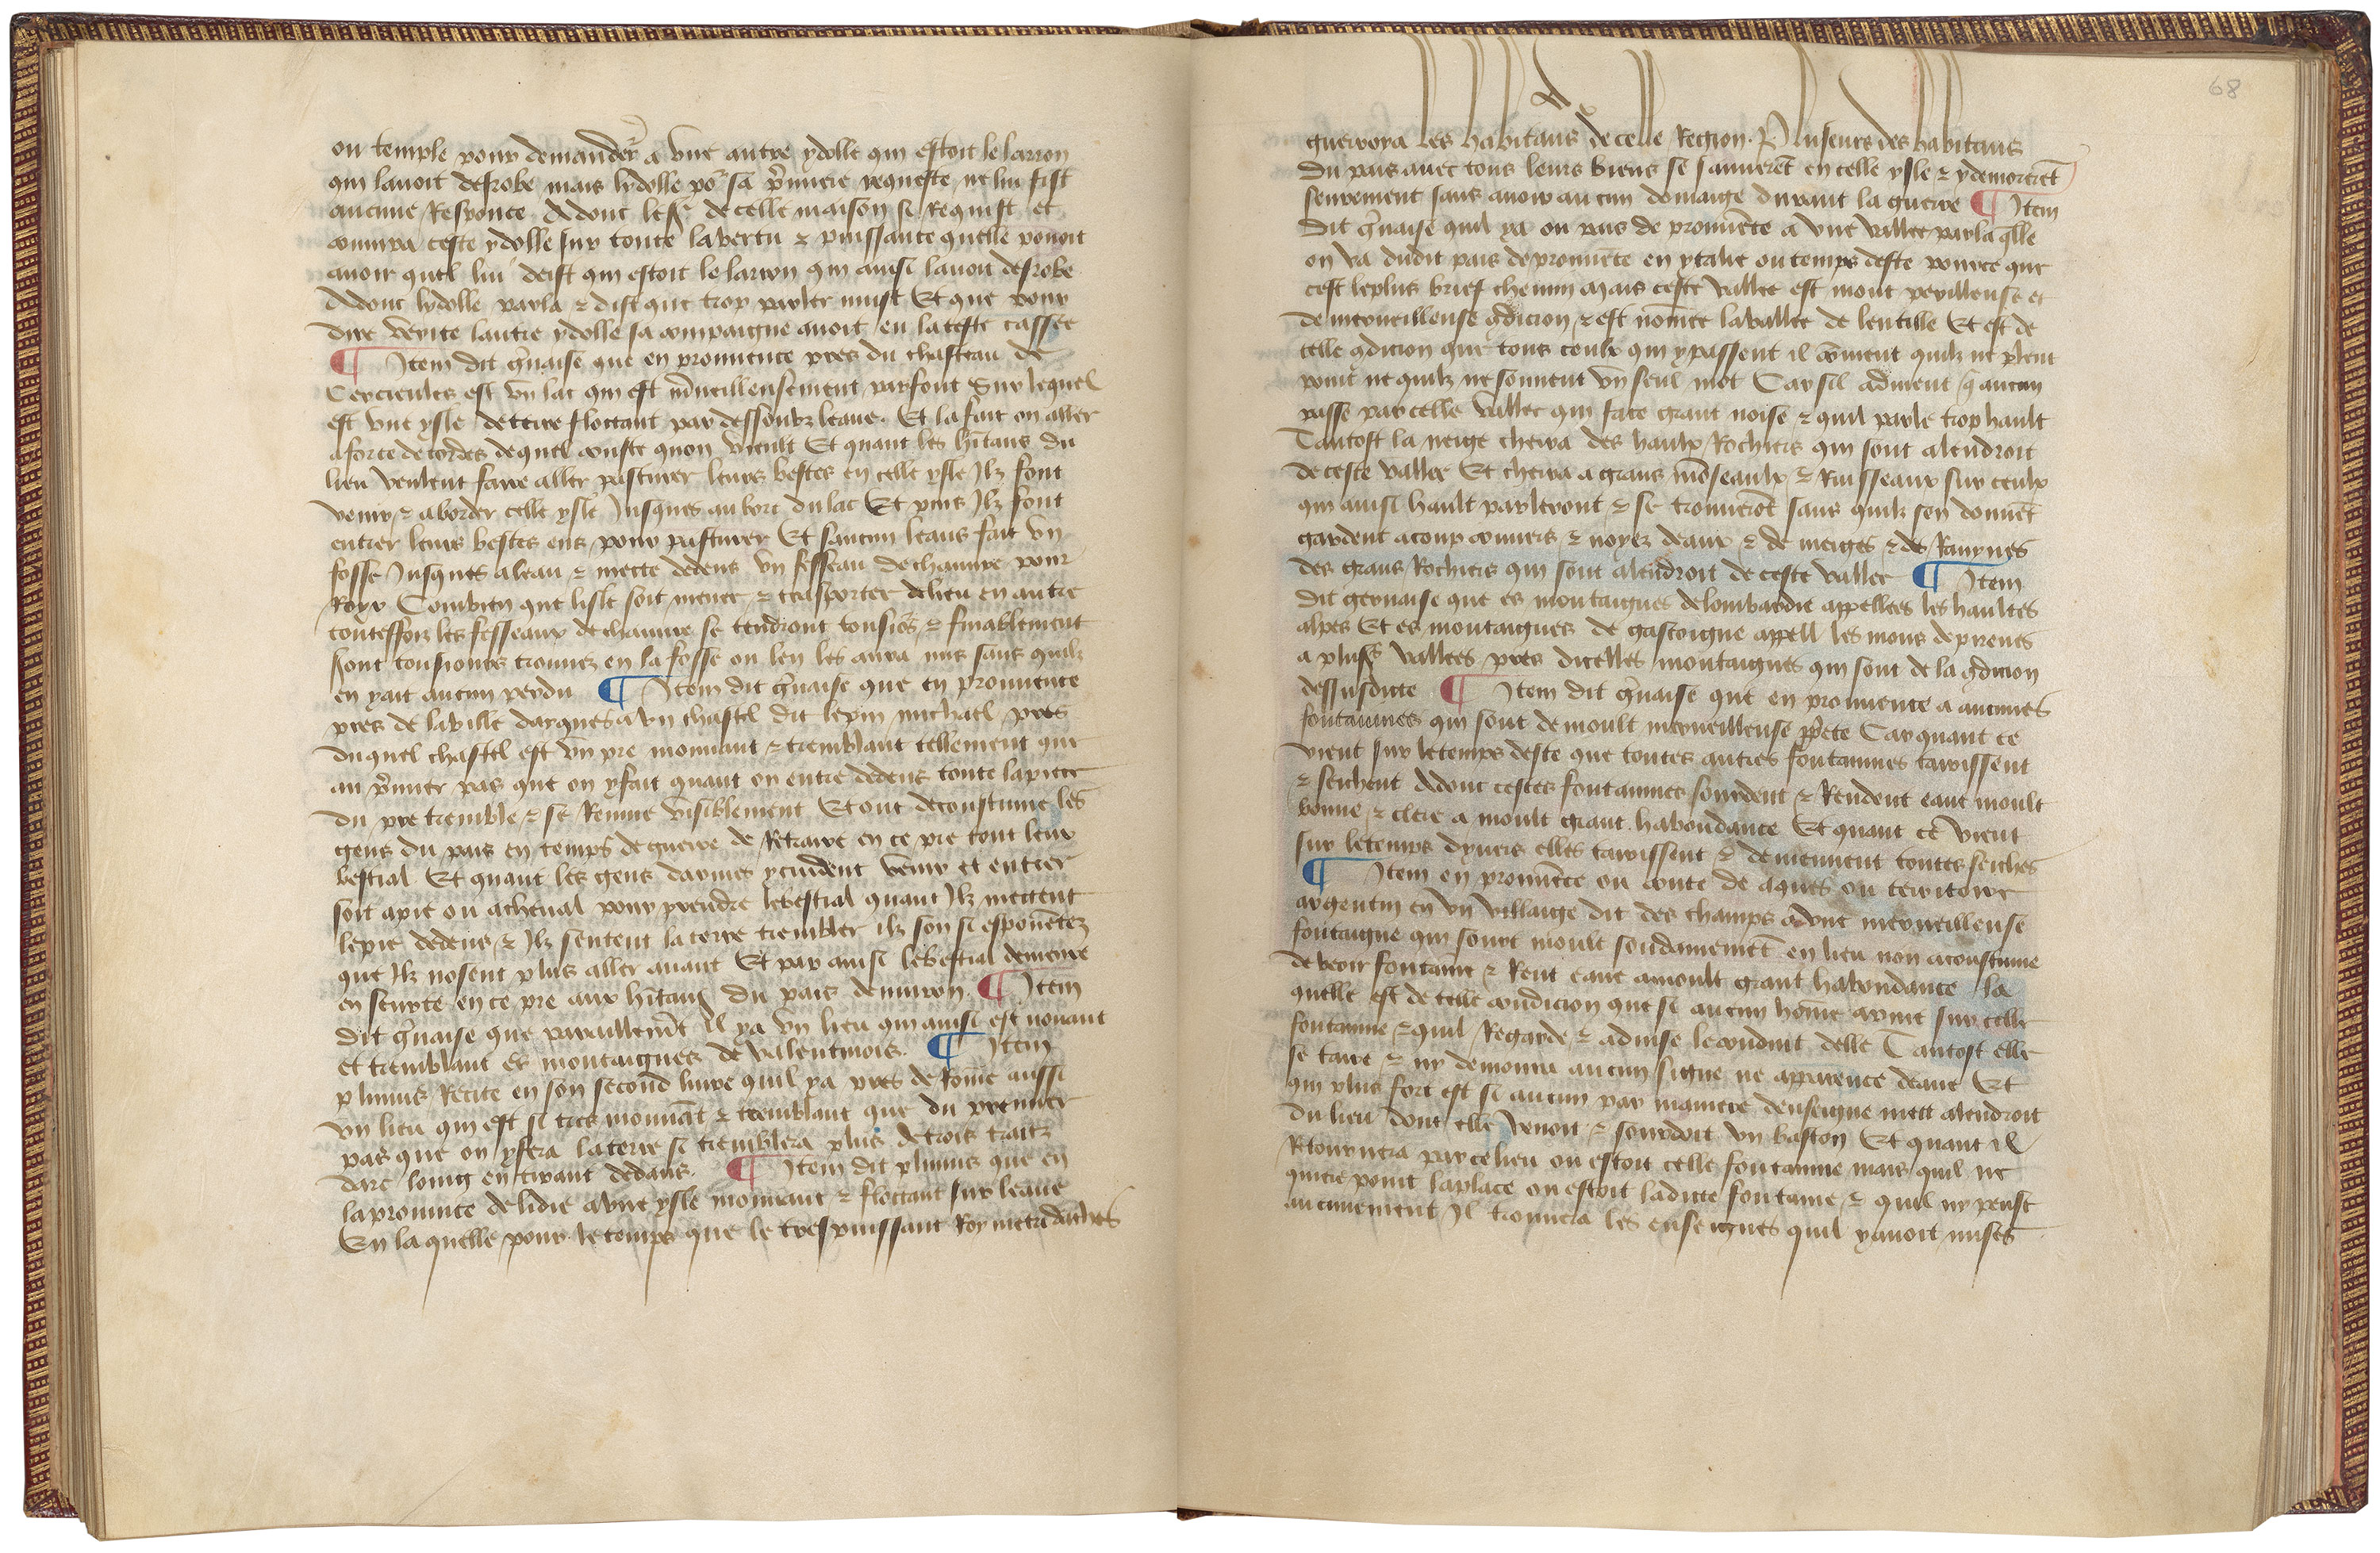 ou temple pour demander a une autre ydolle qui estoit le larron
qui lavoit desrobe mais lydolle po' sa p'miere requeste ne lui fist
aucune Responce Adont le de celle maison si Requist et
coniura ceste ydolle sur toute la vertu & puissance quelle pouoit
auoir quel lui deist qui estoit le larron qui ainsi lauoit desrobe
Adonc lydolle parla & dist que trop parler nuist Et que pour
dire verite lautre ydolle sa compaigne auoit eu la teste cassee
¶ Item dit g'uaise que en prouuence pres du chasteau de
est un lac qui est m'ueilleusement parfont Sur lequel
est une ysle de terre flotant par dessoubz leaue. Et la fait on aller
a force de cordes de quel couste quon veult Et quant les h'itans du
lieu veulent faire aller pasturer leurs bestes en celle ysle Ilz font
venir & aborder celle ysle Iusques au bort du lac Et puis Ilz font
entrer leurs bestes ens pour pasturer Et saucun leans fait un
fosse Iusques a leau & mecte dedens un fesseau de chanure pour
Royr Combien que lisle soit menee & transportee de lieu en autre
toutesfoiz les fesseaux de chanure se tendront tousio's & finablement
sont tousiours trouuez en la fosse ou len les aura mis sans quilz
en yait aucun perdu ¶ Item dit g'uaise que en prouuence
pres de la ville darques a un chastel dit lepin michael pres
duquel chastel est un pre mouuant & tremblant tellement que
au p'mier pas que on y fait quant on entre dedens toute la piece
du pre tremble & se Remue visiblement Et ont de coustume les
gens du pais en temps de guerre de Retraire en ce pre tout leur
bestial Et quant les gens darmes y cuident venir et entrer
soit a pie ou a cheual pour prendre le bestial quant Ilz mectent
le pie dedens & Ilz sentent la terre trembler ilz son si espouentez
que Ilz nosent plus aller auant Et par ainsi le bestial demeure
en seurte en ce pre aux h'itans du pais denuiron. ¶ Item
dit g'uaise que pareillem't Il ya un lieu qui ainsi est mouuant
et tremblant es montaignes de valentinois. ¶ Item
plinius Recite en son second liure quil ya pres de Rome aussi
un lieu qui est si tres mouuat & tremblant que du premier
pas que on y fera la terre si tremblera plus de trois traitz
darc loing en tirant dedans. ¶ Item dit plinius que en
la prouince de lidie a une ysle mouuant & flotant sur leaue
En la quelle pour le temps que le trespuissant Roy metridathes
guerroya les habitans de celle Region. Pluseurs des habitans
du pais auec tous leurs biens se sauueret en celle ysle & y demoreret
seurement sans auoir aucun domaige durant la guerre ¶ Item
dit g'uaise quil ya ou pais de prouuece a une vallee par la qlle
on va dudit pais de prouuece en ytalie ou temps deste pource que
cest le plus brief chemin Mais ceste vallee est mout perilleuse et
de merueilleuse 9dicion & est nomee la vallee de lentille Et est de
telle 9dicion que tous ceulx qui y passent il couient quilz ne plent
point ne quilz ne sonnent un seul mot Car sil aduient q aucun
passe par celle vallee qui face grant noise & quil parle trop hault
Tantost la neige cherra des haulx Rochiers qui sont alendroit
de ceste vallee Et cherra a grans moseaulx & Ruisseaux sur ceulx
qui ainsi hault parleront & se trouueront sans quilz sen donnet
gardent a coup couuers & noyez deaux & de neiges & de Rauynes
des grans Rochiers qui sont alendroit de ceste vallee ¶ Item
dit geruaise que es montaignes de lombardie appellees les haultes
alpes Et es montaignes de gascoigne appell les mons de pirenes
a plus's vallees pres dicelles montaignes qui sont de la 9dicion
dessusdicte ¶ Item dit g'uaise que en prouuence a aucunes
fontaines qui sont de moult merueilleuse p'prete Car quant ce
vient sur le temps deste que toutes autres fontaines tarissent
& seichent Adonc cestes fontaines sourdent & Rendent eaue moult
bonne & clere a moult grant habondance Et quant ce vient
sur le temps dyuers elles tarissent & deuiennent toutes seiches
¶ Item en prouuece ou conte de aques ou territoire
argentin en un villaige dit des champs a une merueilleuse
fontaigne qui sourt moult soudainemet en lieu non acoustume
de veoir fontaine & Rent eaue a moult grant habondance la
quelle est de telle condicion que si aucun home arriue sur celle
fontaine & quil Regarde & aduise le conduit delle Tantost elle
se tarie & ny demoura aucun signe ne apparence deaue Et
qui plus fort est si aucun par maniere denseigne mect alendroit
du lieu dont elle venoit & sourdoit un baston Et quant il
Retournera par ce lieu ou estoit celle fontaine mais quil ne
quiere point la place ou estoit ladicte fontaine & quil ny pense
aucunement Il trouuera les enseignes quil y auoit mises
68